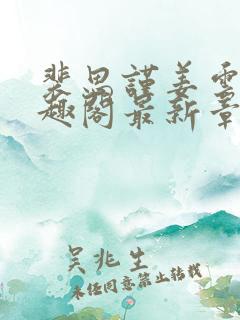 裴思谨姜雪
趣阁最新章
吴兆生
未经同意禁止转载